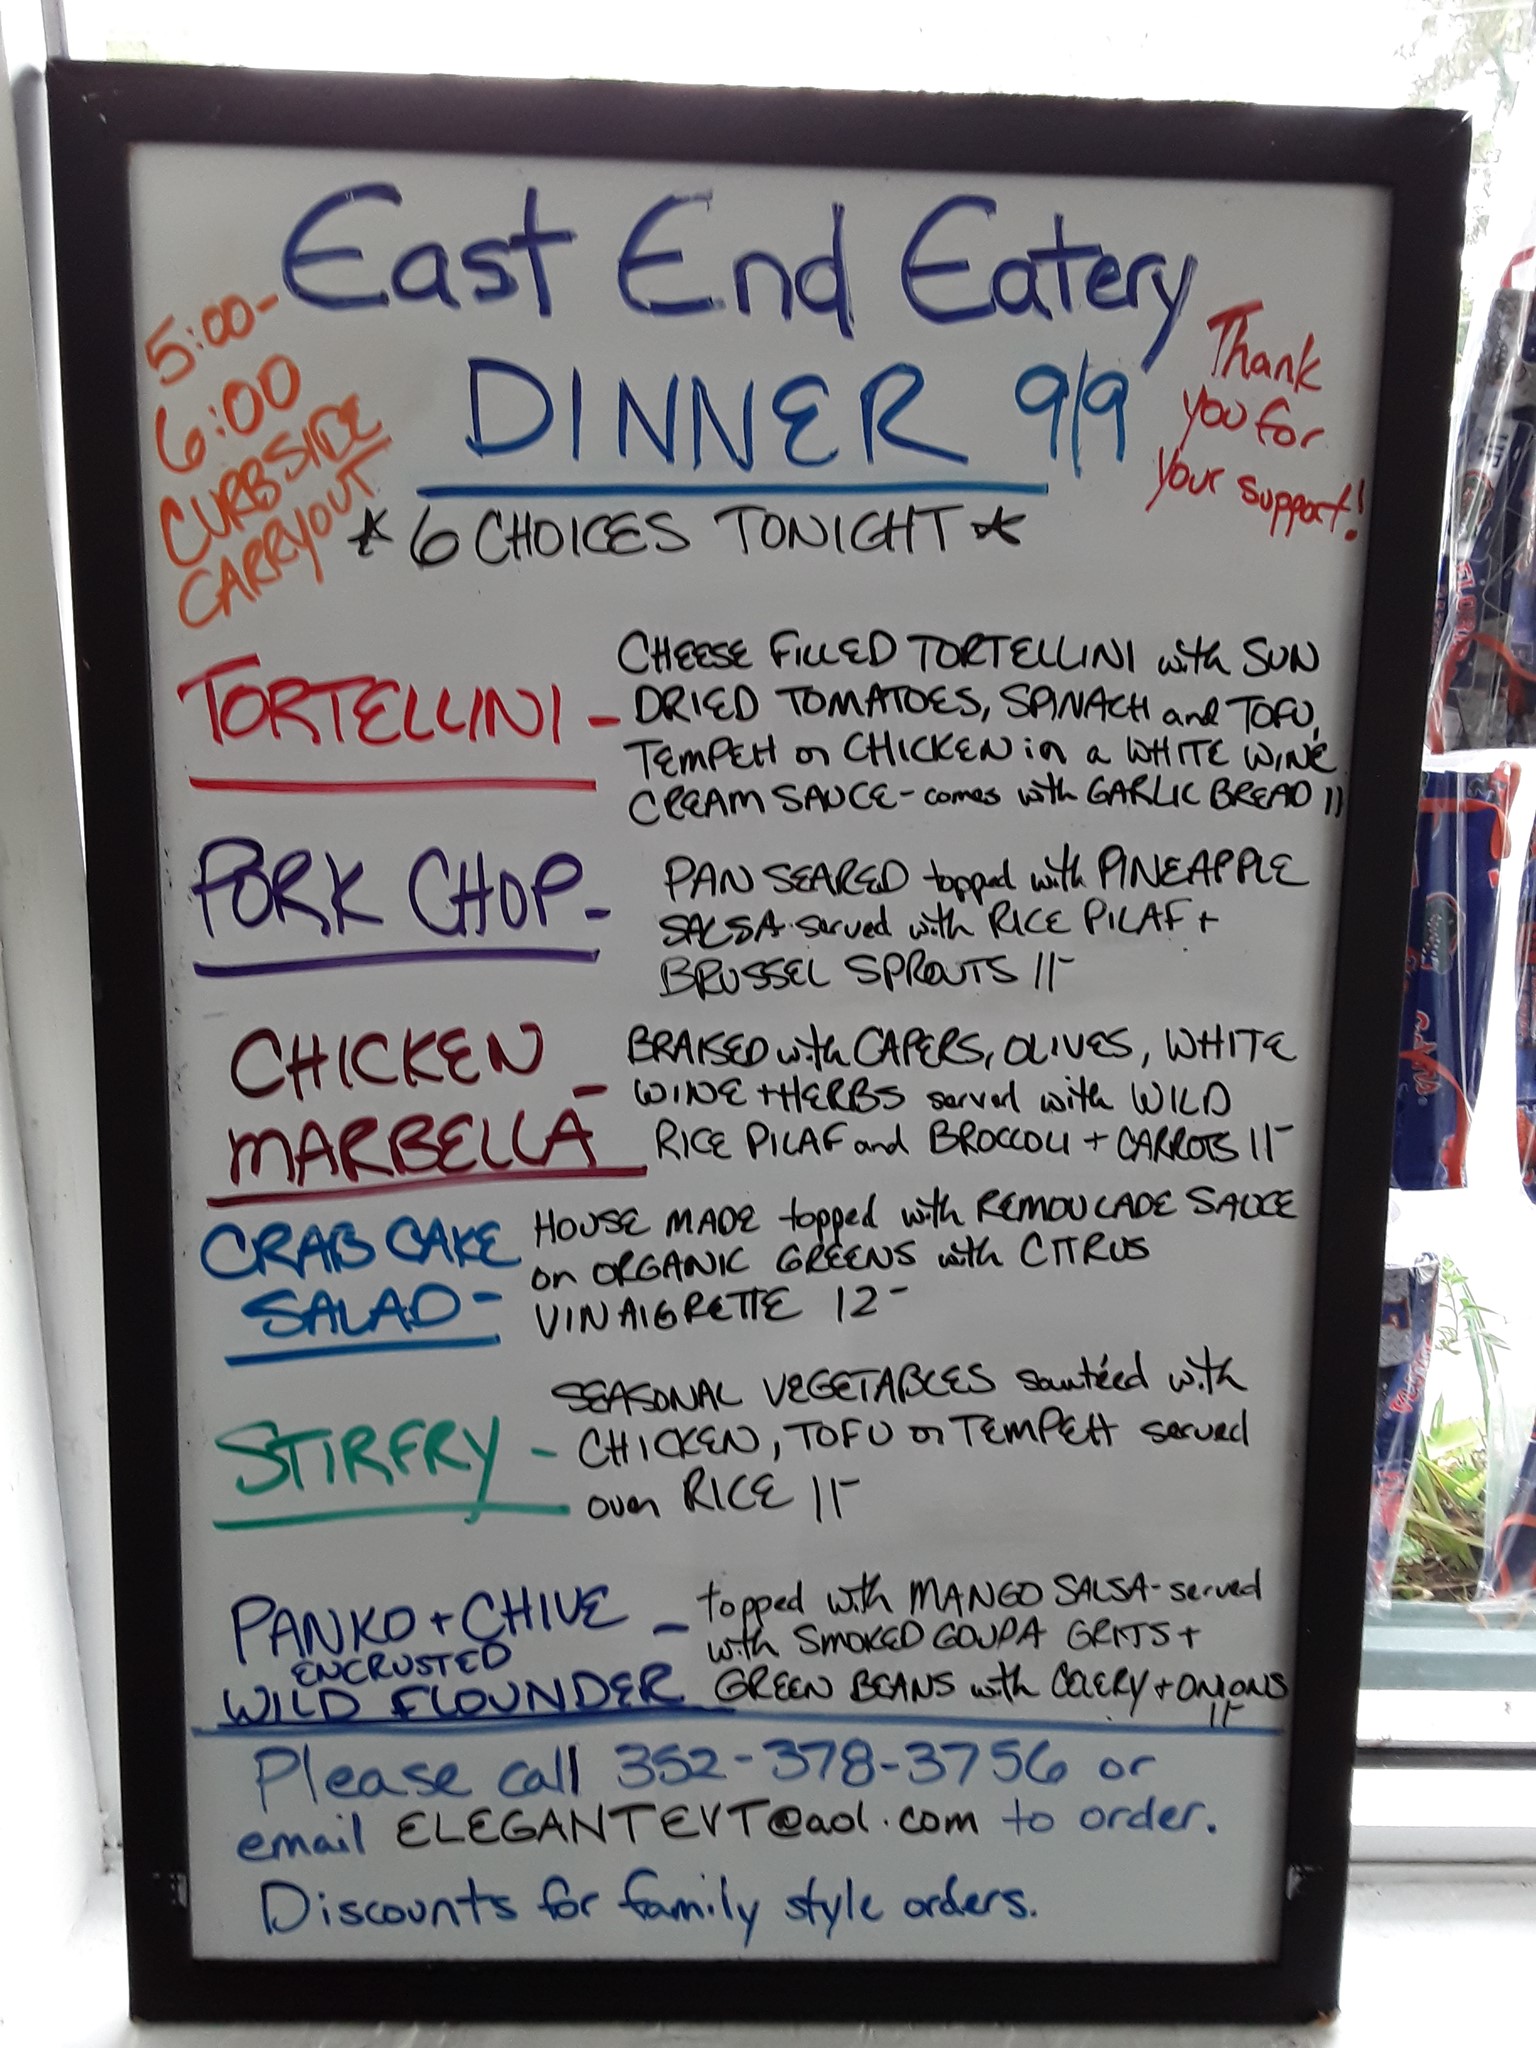 East End Eatery
5:00-
6:00
CURBSIDE
CARRYOUT
DINNER 9/9
Thank
you for
your support!
*6 CHOICES TONIGHT*
TORTELLINI -
CHEESE FILLED TORTELLINI with SUN
DRIED TOMATOES, SPINACH and TOFU,
TEMPEH or CHICKEN in a WHITE WINE
CREAM SAUCE - comes with GARLIC BREAD 11
PORK CHOP -
PAN SEARED topped with PINEAPPLE
SALSA served with RICE PILAF +
BRUSSEL SPROUTS 11-
CHICKEN
MARBELLA -
BRAISED with CAPERS, OLIVES, WHITE
WINE + HERBS served with WILD
RICE PILAF and BROCCOLI + CARROTS 11-
CRAB CAKE
SALAD -
HOUSE MADE topped with REMOULADE SAUCE
on ORGANIC GREENS with CITRUS
VINAIGRETTE 12-
STIRFRY -
SEASONAL VEGETABLES sautéed with
CHICKEN, TOFU or TEMPEH served
over RICE 11-
PANKO + CHIVE
ENCRUSTED
WILD FLOUNDER -
topped with MANGO SALSA - served
with SMOKED GOUDA GRITS +
GREEN BEANS with CELERY + ONIONS
11-
Please call 352-378-3756 or
email ELEGANTEVT@aol.com to order.
Discounts for family style orders.